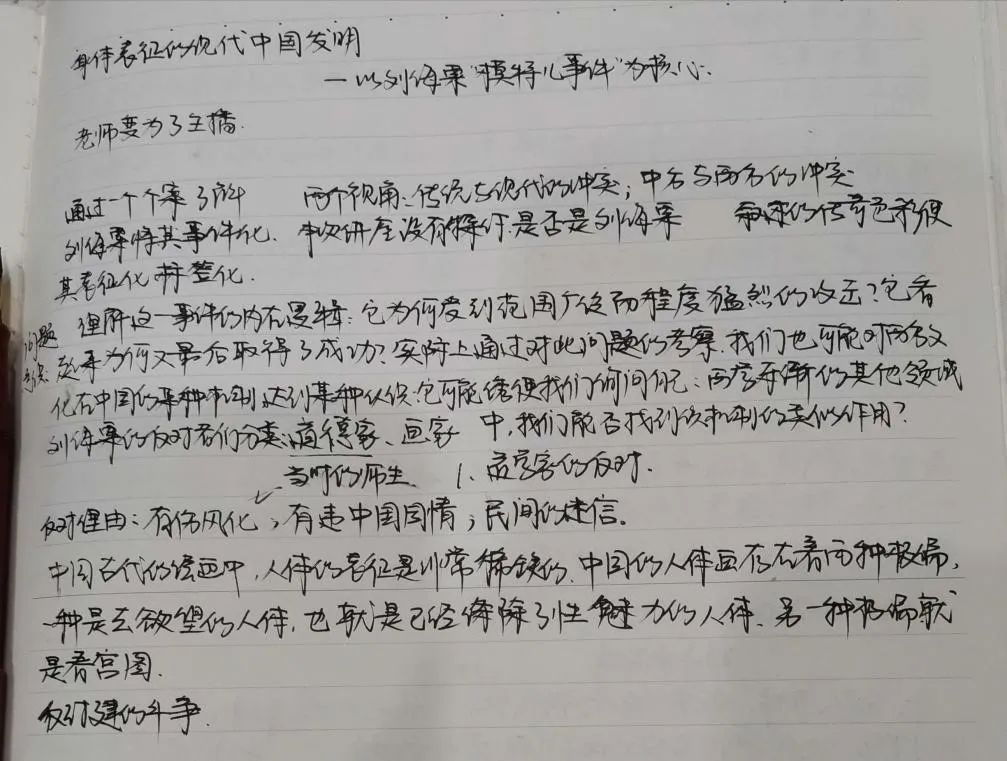 身体表征的现代中国发明
—以刘海粟“模特儿事件”为核心.
老师变为了主播.
通过一个个案了解 两个视角:传统与现代的冲突;中方与西方的冲突
刘海粟将其事件化. 本次讲座没有探讨.是否是刘海粟 的传奇色彩使
其表征化 并 化.
问题意识 理解这一事件的内在逻辑:它为何受到范围广泛而程度猛烈的攻击?它看
起来为何又最后取得了成功?实际上通过对此问题的考察,我们也可能对西方文
化在中国的某种机制达到某种认识.它可能诱使我们询问自己:西学东渐的其他领域
刘海粟的反对者们分类:道德家、画家 中,我们能否找到该机制的类似作用?
当时的师生 1. 道学家的反对.
反对理由:有伤风化,有违中国国情;民间的迷信。
中国古代的绘画中,人体的表征是非常稀缺的.中国的人体画存在着两种极端,
一种是去欲望的人体,也就是已经消除了性魅力的人体.另一种极端就
是春宫图.
反封建的斗争.